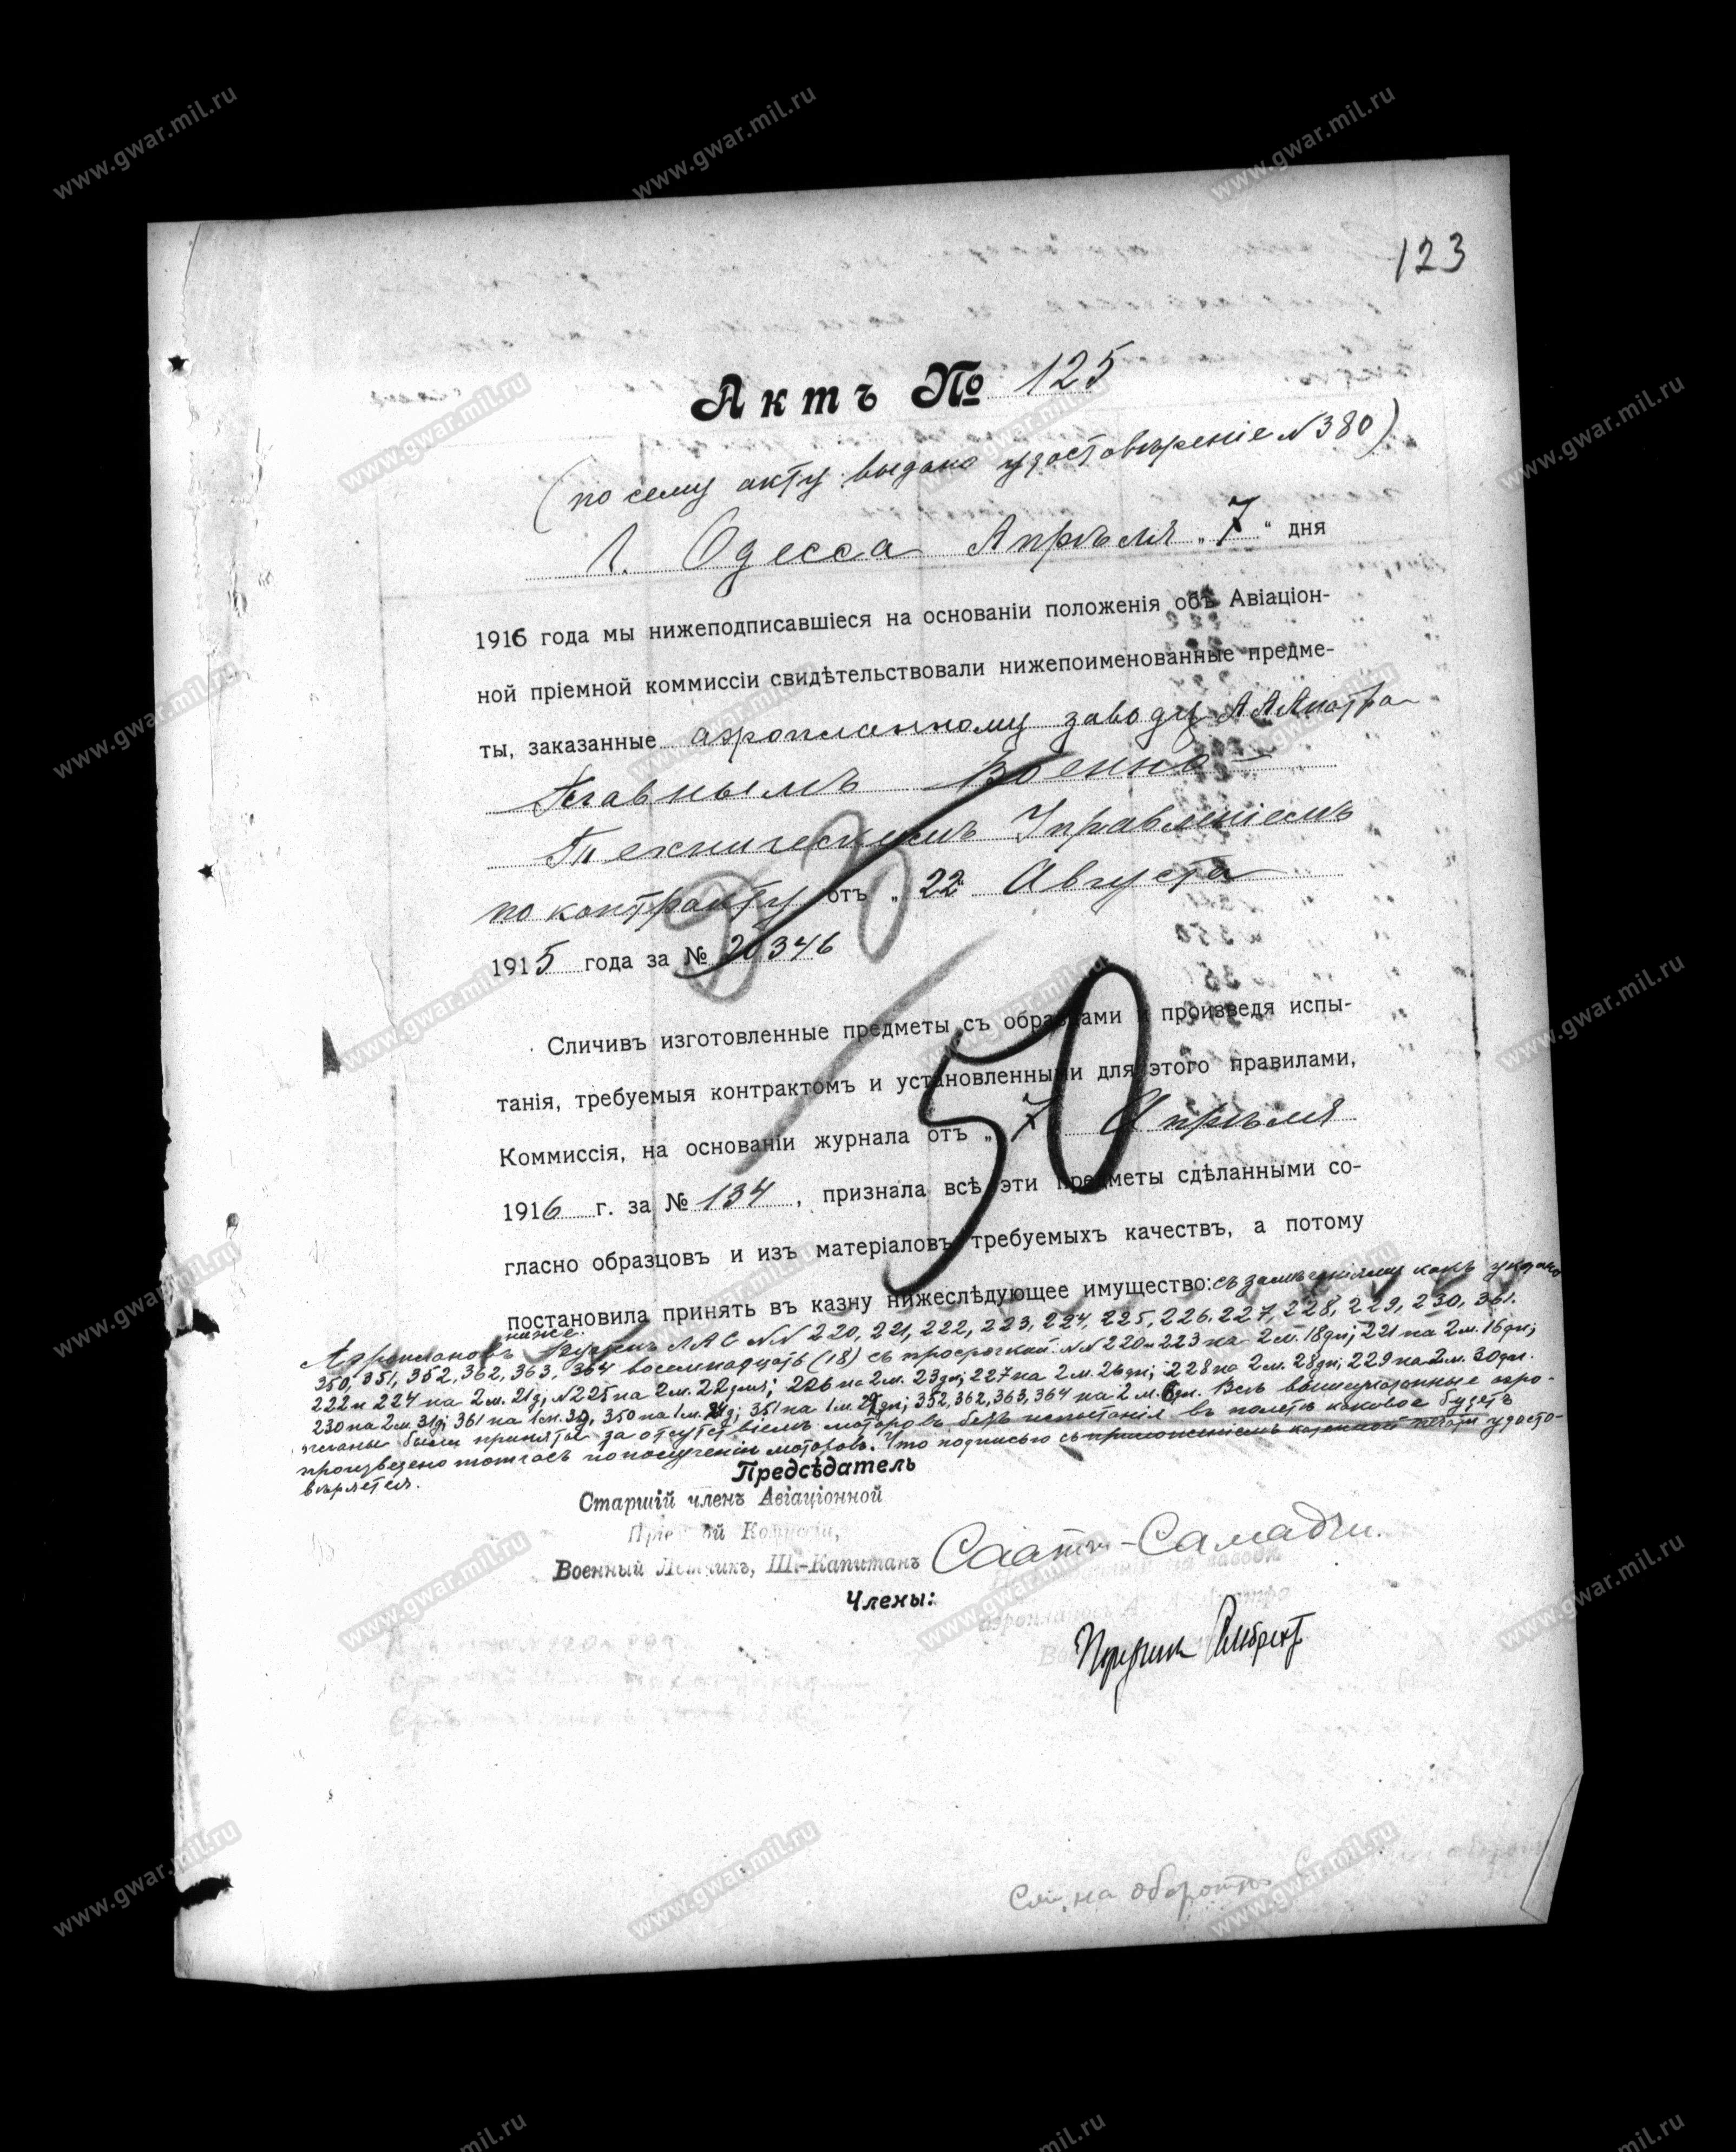 123
Актъ № 125
(по сему акту выдано удостовѣреніе N 380)
Г. Одесса Апрѣля „7“ дня
1916 года мы нижеподписавшіеся на основаніи положенія объ Авіаціон-
ной пріемной коммиссіи свидѣтельствовали нижепоименованные предме-
ты, заказанные аэропланному заводу А А Анатра
Главнымъ Военно-
Техническимъ Управленіемъ
по контракту отъ „22 Августа
1915 года за № 20346
50
Сличивъ изготовленные предметы съ образцами и произведя испы-
танія, требуемыя контрактомъ и установленными для этого правилами,
Коммиссія, на основаніи журнала отъ „7 Апрѣля
1916 г. за № 134, признала всѣ эти предметы сдѣланными со-
гласно образцовъ и изъ матеріаловъ требуемыхъ качествъ, а потому
постановила принять въ казну нижеслѣдующее имущество: съ замѣчаніями какъ указано
ниже.
Аэроплановъ Вуазенъ ЛАС NN 220, 221, 222, 223, 224, 225, 226, 227, 228, 229, 230, 361.
350, 351, 352, 362, 363, 364 восемнадцать (18) съ просрочкой: NN 220 и 223 на 2 м. 18 дн; 221 на 2 м. 16 дн;
222 и 224 на 2 м. 21 д; N 225 на 2 м. 22 дня; 226 на 2 м. 23 дн; 227 на 2 м. 26 дн; 228 на 2 м. 28 дн; 229 на 2 м. 30 дн.
230 на 2 м. 31 д; 361 на 1 м. д, 350 на 1 м. д; 351 на 1 м. дн; 352, 362, 363, 364 на 2 м. дн. Всѣ вышеуказанные аэро-
планы были приняты за отсутствіемъ моторовъ безъ испытанія въ полетѣ каковое будетъ
произведено тотчасъ по полученіи моторовъ. Что подписью съ приложеніемъ казенной печати удосто-
вѣряется.
Предсѣдатель
Старшій членъ Авіаціонной
Пріемной Комиссіи,
Военный Летчикъ, Ш.-Капитанъ Саатчи-Самадчи.
Члены:
на заводѣ
аэроплановъ А. А. Анатра
Поручикъ
См. на оборотѣ